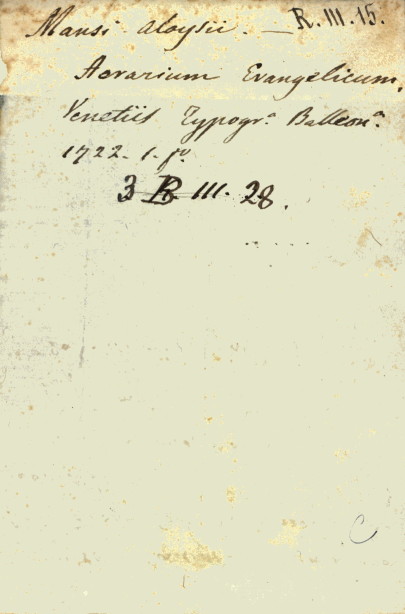 Mansi Aloysii. — R. III. 15.
Aerarium Evangelicum,
Venetiis Typogr.a Balleon.a
1722. 1. fo.
3 B III. 28.
C